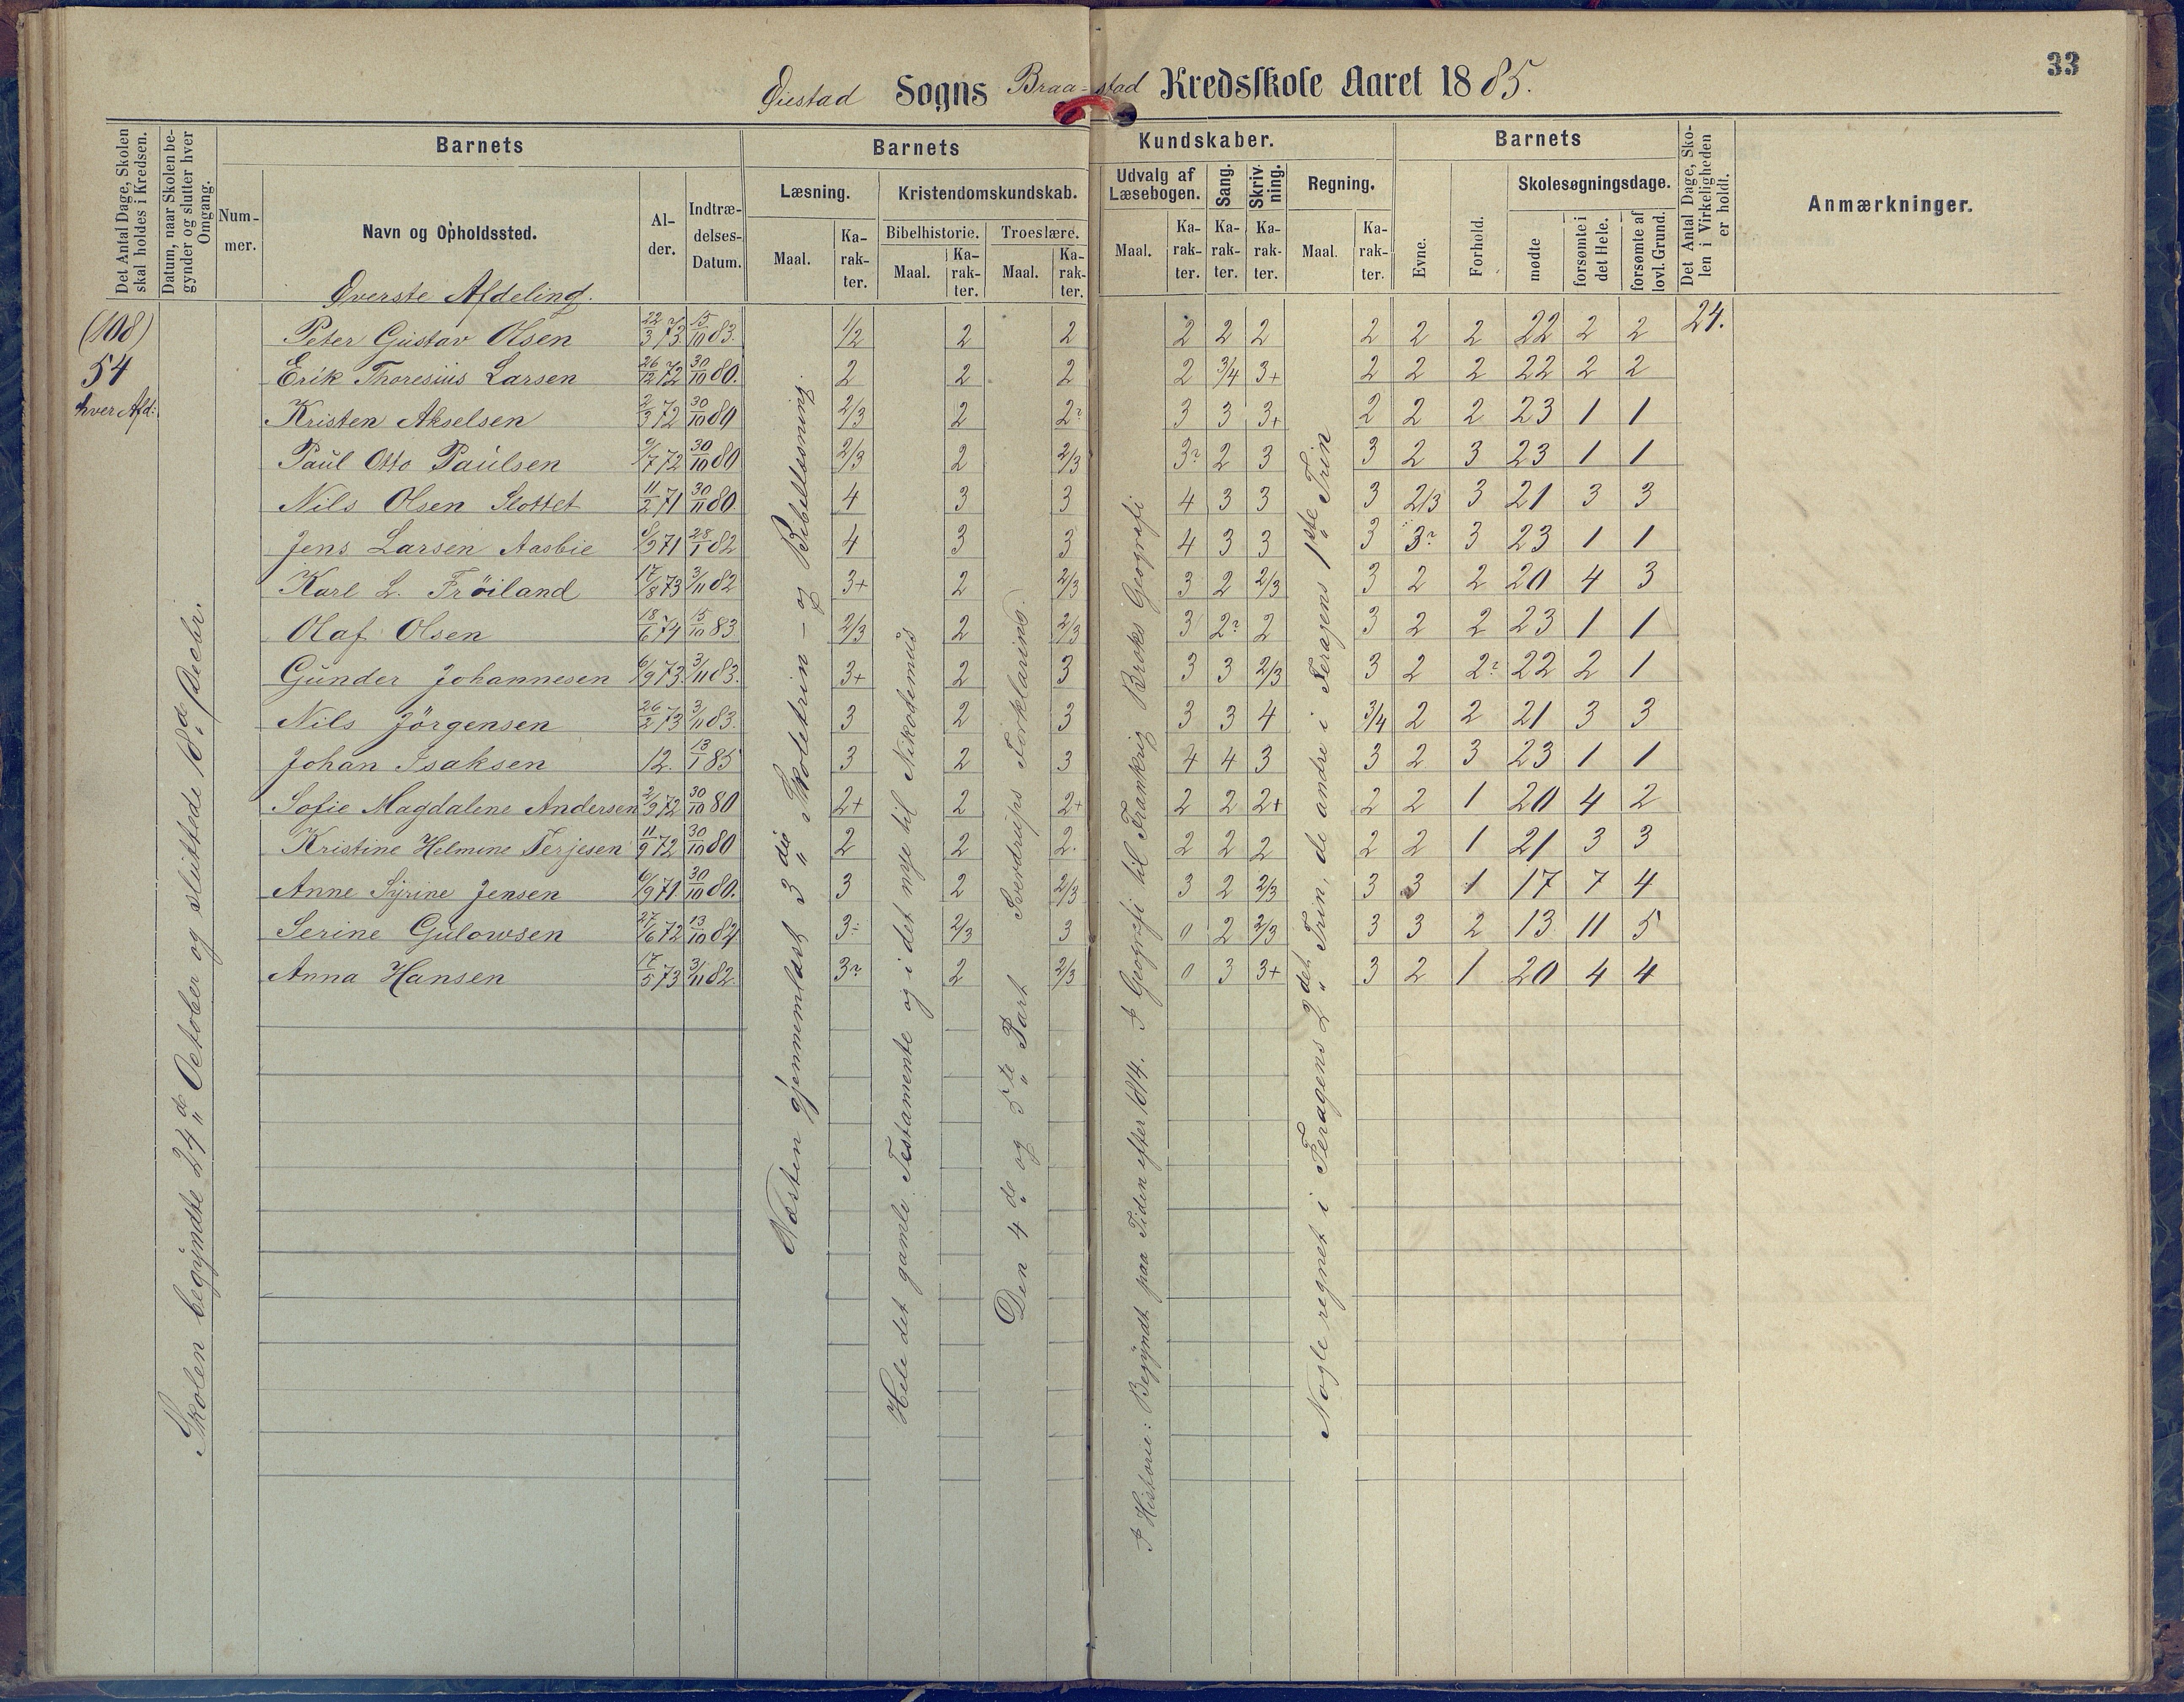 33
Øiestad Sogns Braa-stad Kredsskole Aaret 1885.
Det Antal Dage, Skolen skal holdes i Kredsen.
Datum, naar Skolen begynder og slutter hver Omgang.
Barnets
Nummer.
Navn og Opholdssted.
Alder.
Indtrædelses-Datum.
Barnets Kundskaber.
Læsning.
Maal.
Karakter.
Kristendomskundskab.
Bibelhistorie.
Maal.
Karakter.
Troeslære.
Maal.
Karakter.
Udvalg af Læsebogen.
Maal.
Karakter.
Sang.
Karakter.
Skrivning.
Karakter.
Regning.
Maal.
Karakter.
Barnets
Evne.
Forhold.
Skolesøgningsdage.
mødte
forsømte i det Hele.
forsømte af lovl. Grund.
Det Antal Dage, Skolen i Virkeligheden er holdt.
Anmærkninger.
Øverste Afdeling.
(108)
54
hver Afd:
Skolen begyndte 24de October og sluttede 18d Decbr.
Næsten gjennemlæst 3die Skoletrin – og Bibellæsning.
Hele det gamle Testamente og i det nye til Nikodemus
Den 4de og 5te Part Sverdrups Forklaring.
I Historie: Begyndt paa Tiden efter 1814. I Geografi til Frankrig Broks Geografi
Nogle regnet i Feragens 2det Trin, de andre i Feragens 1ste Trin
Peter Gustav Olsen 22/3 73. 15/10 83. 1/2 2 2 2 2 2 2 2 2 22 2 2 24.
Erik Thoresius Larsen 26/12 72 30/10 80. 2 2 2 2 3/4 3+ 2 2 2 22 2 2
Kristen Akselsen 2/3 72 30/10 80 2/3 2 2? 3 3 3+ 2 2 2 23 1 1
Paul Otto Paulsen 9/7 72 30/10 80 2/3 2 2/3 3? 2 3 3 2 3 23 1 1
Nils Olsen Slottet 11/2 71 30/11 80 4 3 3 4 3 3 3 2/3 3 21 3 3
Jens Larsen Aasbie 8/9 71 28/1 82 4 3 3 4 3 3 3 3? 3 23 1 1
Karl L. Frøiland 17/8 73 3/11 82 3+ 2 2/3 3 2 2/3 3 2 2 20 4 3
Olaf Olsen 18/6 74 15/10 83 2/3 2 2/3 3 2? 2 3 2 2 23 1 1
Gunder Johannesen 6/9 73. 3/11 83. 3+ 2 3 3 3 2/3 3 2 2? 22 2 1
Nils Jörgensen 26/2 73 3/11 83. 3 2 3 3 3 4 3/4 2 2 21 3 3
Johan Isaksen 12. 13/1 85 3 2 3 4 4 3 3 2 3 23 1 1
Sofie Magdalene Andersen 2/9 72 30/10 80 2+ 2 2+ 2 2 2+ 2 2 1 20 4 2
Kristine Helmine Terjesen 11/9 72 30/10 80 2 2 2. 2 2 2 2 2 1 21 3 3
Anne Syrine Jensen 6/9 71. 30/10 80. 3 2 2/3 3 2 2/3 3 3 1 17 7 4
Serine Gulowsen 27/6 72 13/10 84 3÷ 2/3 3 0 2 2/3 3 3 2 13 11 5
Anna Hansen 17/5 73 3/11 82. 3? 2 2/3 0 3 3+ 3 2 1 20 4 4